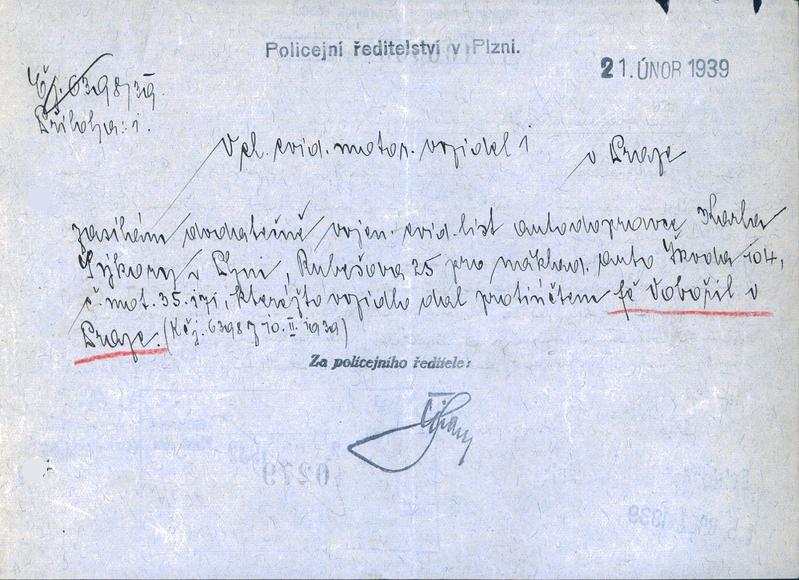 Policejní ředitelství v Plzni.
21. ÚNOR 1939
Čj. 6398/39.
Příloha: 1.
Vpl. evid. motor. vozidel 1
v Praze
zasílám dodatečně vojen. evid. list autodopravce Karla
Sýkory v Plzni, Rubešova 25 pro náklad. auto Škoda 104,
č. mot. 35.171, kteréžto vozidlo dal protiúčtem fě Vobořil v
Praze. (K čj. 6398 z 10. II. 1939)
Za policejního ředitele:
0279